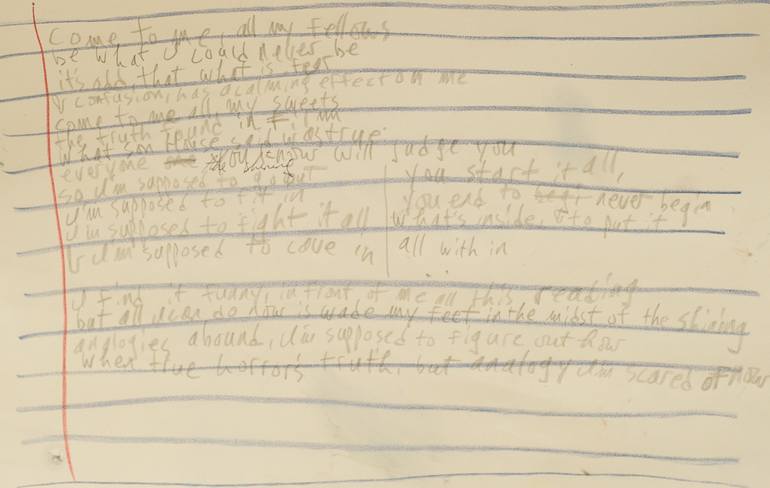 Come to me, all my fellows
be what I could never be
it's odd, that what is fear
& confusion, has a calming effect on me
come to me all my sweets
the truth found in
What son House said was true
everyone you know will judge you
so I'm supposed to
I'm supposed to fit in
I'm supposed to fight it all
& I'm supposed to cave in
you start it all,
you end to never begin
What's inside, to put it
all with in
I find it funny, in front of me all this reading
but all I can do now is wade my feet in the midst of the shining
analogies abound, I'm supposed to figure out how
when true horror's truth, but analogy I'm scared of now